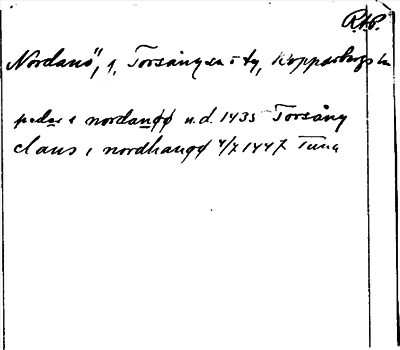 RAP.
Nordanö, s, Torsångs sn o ty, Kopparbergs ln
peder i nordanøø u.d. 1435 Torsång
claus i nordhangø 4/7 1447 Tuna